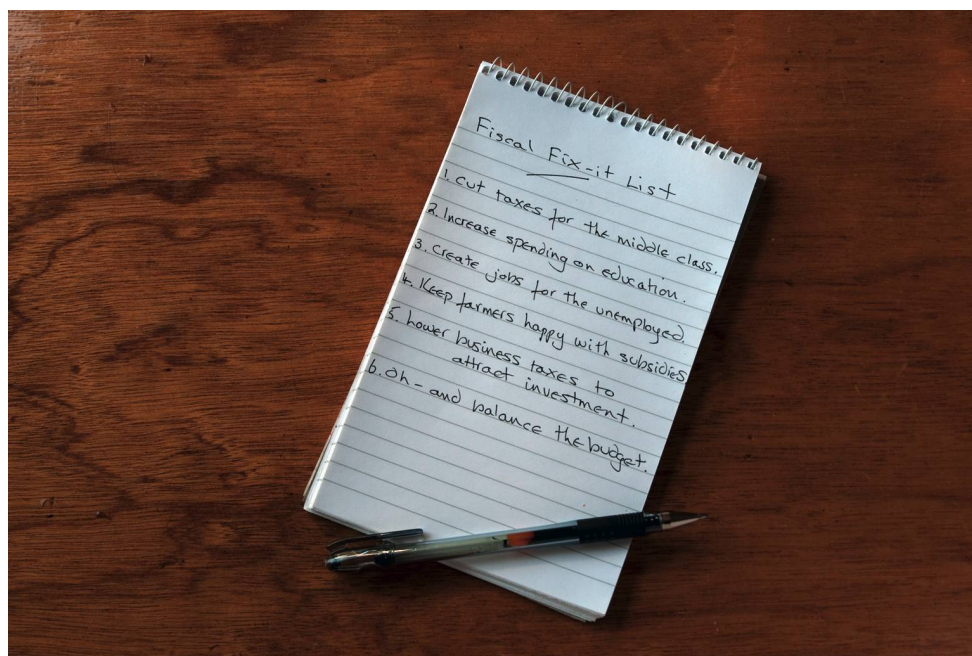 Fiscal Fix-it List
1. Cut taxes for the middle class.
2. Increase spending on education.
3. Create jobs for the unemployed.
4. Keep farmers happy with subsidies
5. Lower business taxes to
attract investment.
6. Oh - and balance the budget.